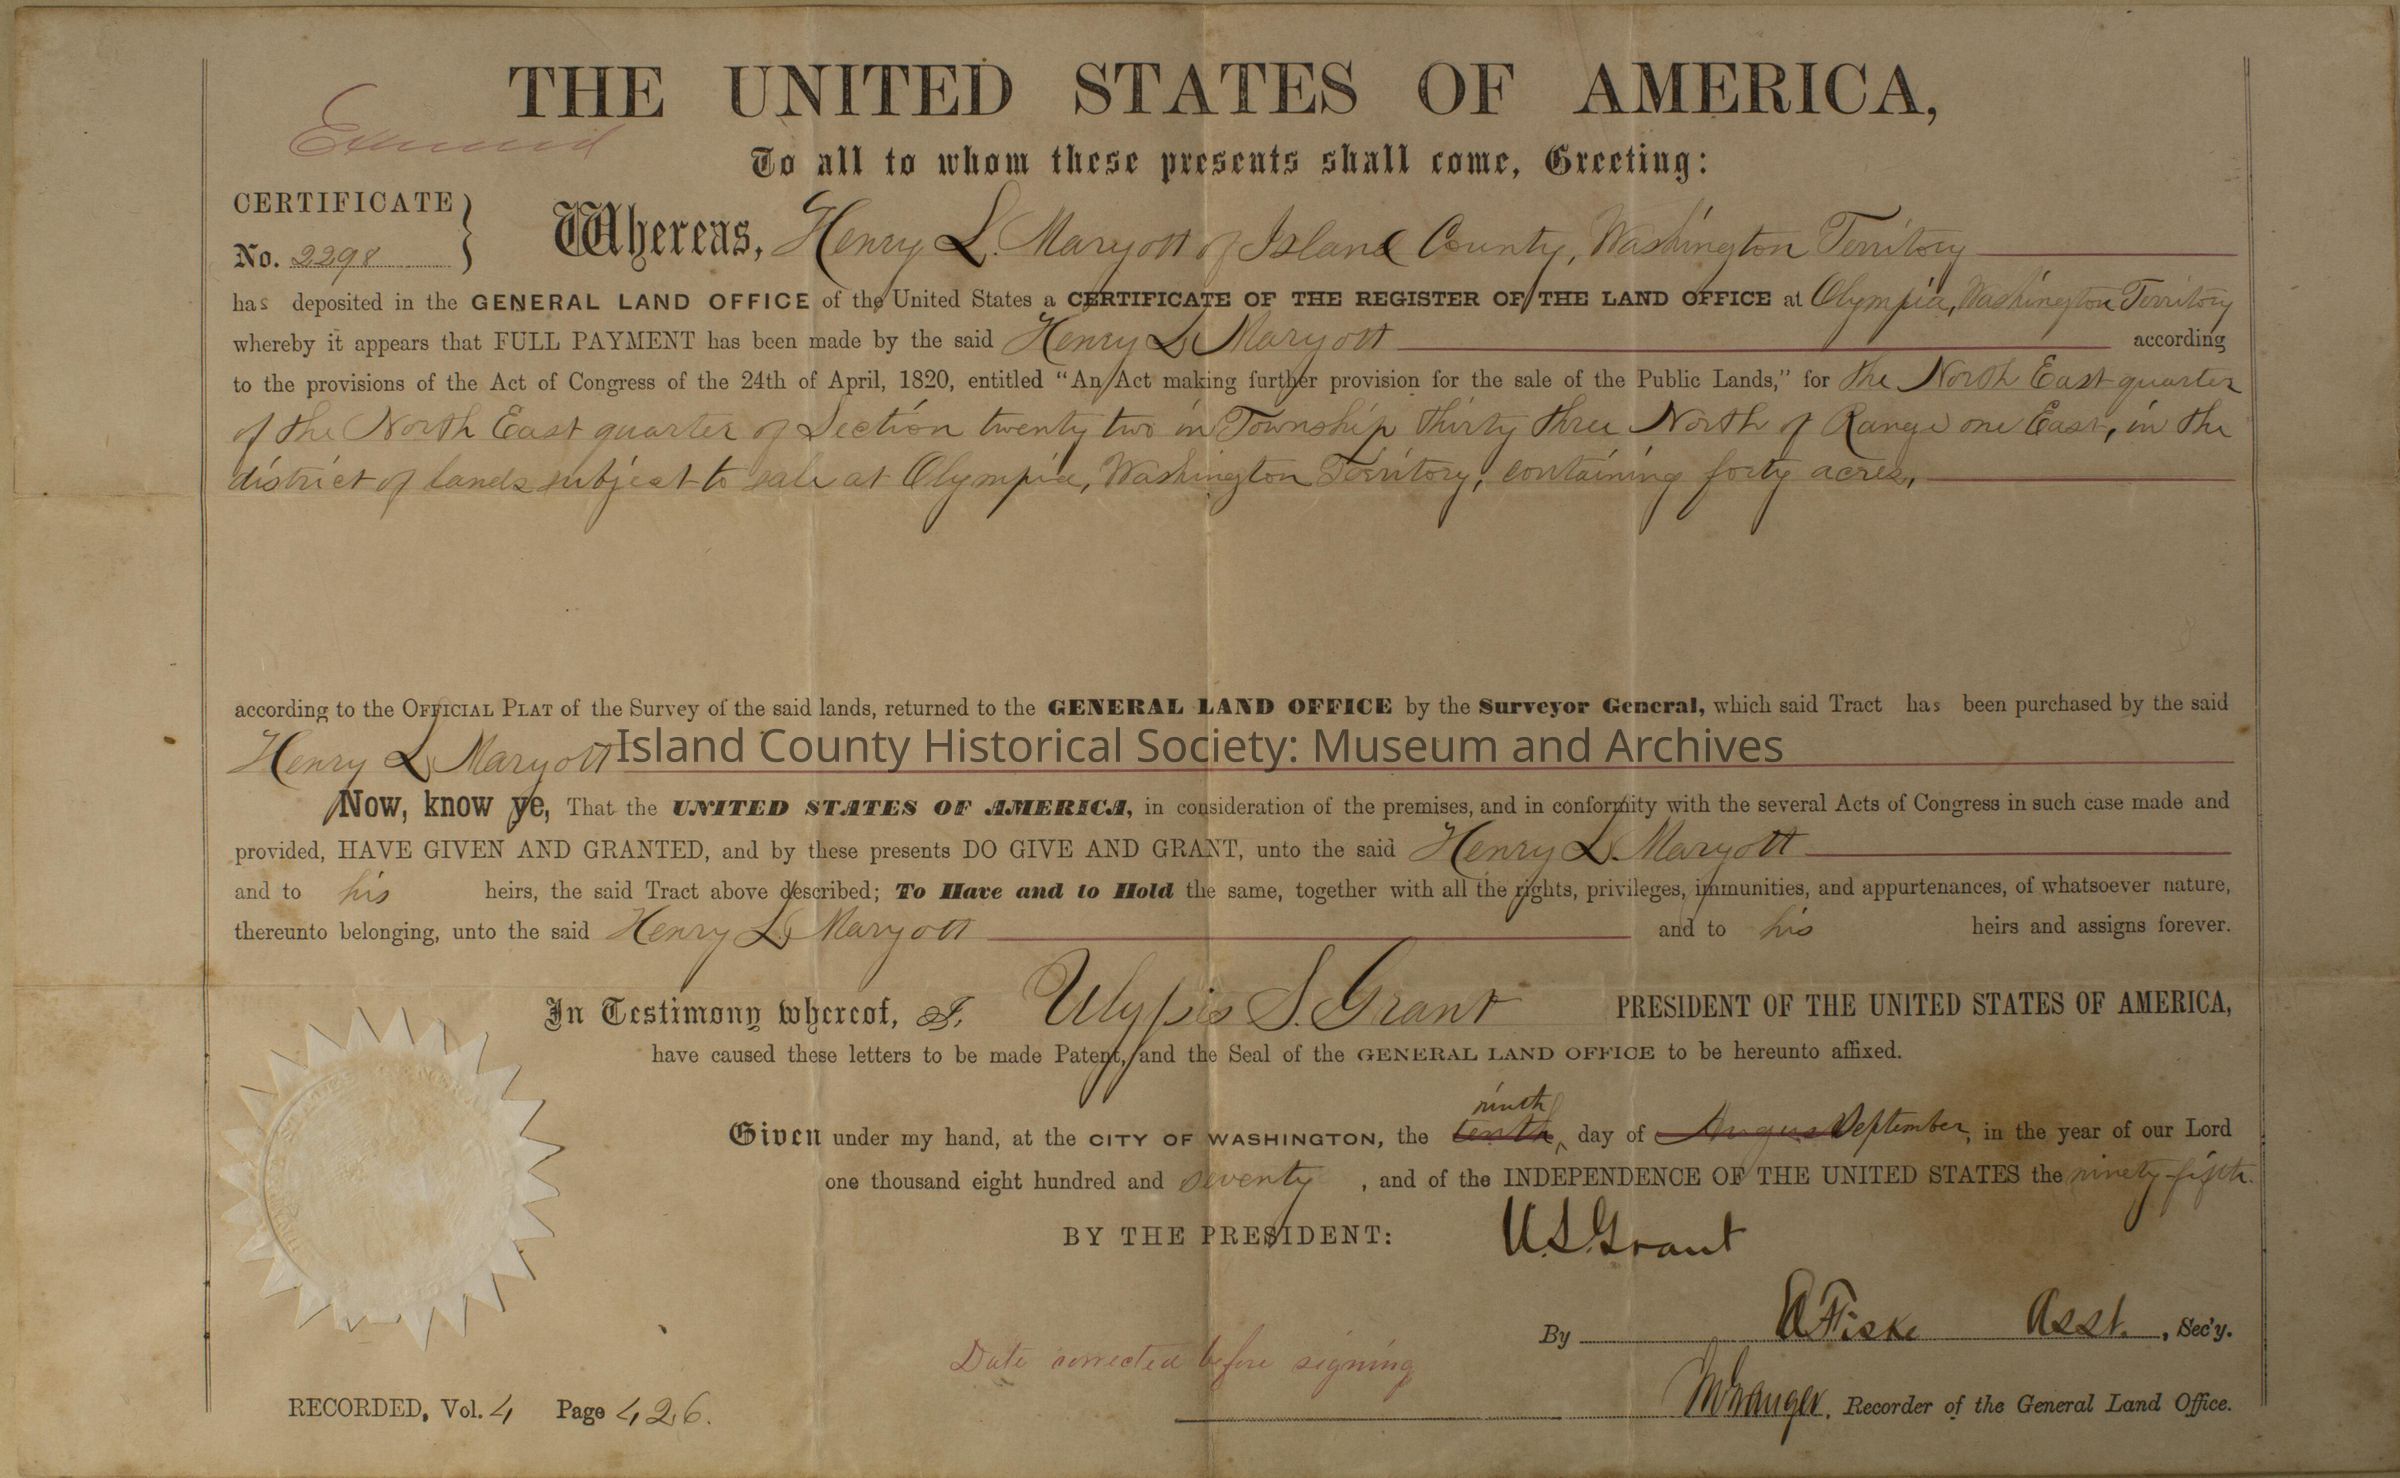 THE UNITED STATES OF AMERICA,
To all to whom these presents shall come, Greeting:
CERTIFICATE
No. 2298
Whereas, Henry L. Maryott of Island County, Washington Territory
has deposited in the GENERAL LAND OFFICE of the United States a CERTIFICATE OF THE REGISTER OF THE LAND OFFICE at Olympia, Washington Territory
whereby it appears that FULL PAYMENT has been made by the said Henry L. Maryott according
to the provisions of the Act of Congress of the 24th of April, 1820, entitled "An Act making further provision for the sale of the Public Lands," for the North East quarter
of the North East quarter of Section twenty two in Township thirty three North of Range one East, in the
district of lands subject to sale at Olympia, Washington Territory, containing forty acres,
according to the OFFICIAL PLAT of the Survey of the said lands, returned to the GENERAL LAND OFFICE by the Surveyor General, which said Tract has been purchased by the said
Henry L. Maryott
Island County Historical Society: Museum and Archives
Now, know ye, That the UNITED STATES OF AMERICA, in consideration of the premises, and in conformity with the several Acts of Congress in such case made and
provided, HAVE GIVEN AND GRANTED, and by these presents DO GIVE AND GRANT, unto the said Henry L. Maryott
and to his heirs, the said Tract above described; To Have and to Hold the same, together with all the rights, privileges, immunities, and appurtenances, of whatsoever nature,
thereunto belonging, unto the said Henry L. Maryott and to his heirs and assigns forever.
In Testimony whereof, I, Ulysses S. Grant PRESIDENT OF THE UNITED STATES OF AMERICA,
have caused these letters to be made Patent, and the Seal of the GENERAL LAND OFFICE to be hereunto affixed.
ninth
Given under my hand, at the CITY OF WASHINGTON, the tenth day of August September, in the year of our Lord
one thousand eight hundred and seventy, and of the INDEPENDENCE OF THE UNITED STATES the ninety-fifth.
BY THE PRESIDENT: U.S. Grant
By Fiske Asst., Sec'y.
Date corrected before signing
RECORDED, Vol. 4 Page 426.
Recorder of the General Land Office.